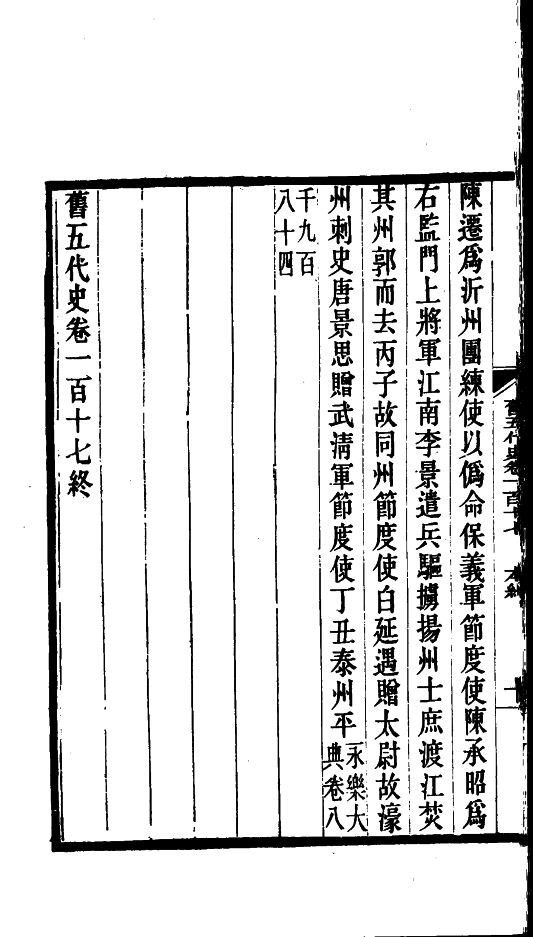 陳遷爲沂州團練使以僞命保義軍節度使陳承昭爲
右監門上將軍江南李景遣兵驅擄揚州士庶渡江焚
其州郭而去丙子故同州節度使白延遇贈太尉故濠
州刺史唐景思贈武淸軍節度使丁丑泰州平永樂大
典卷八
千九百
八十四
舊五代史卷一百十七終
舊五代史卷一百十七 本紀 十